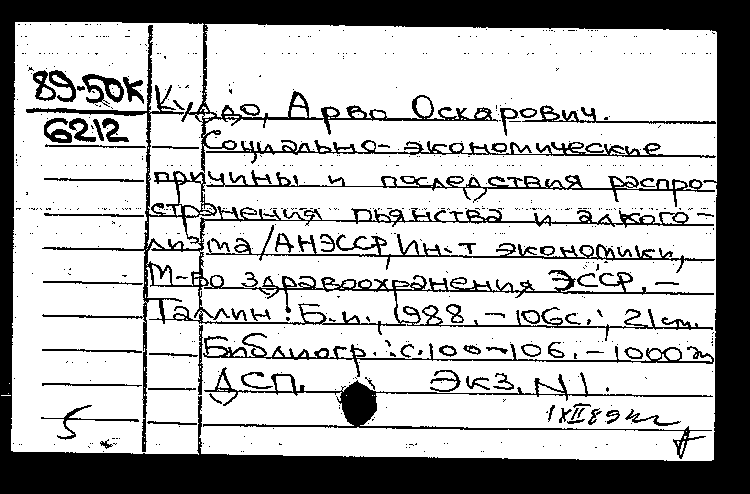 89-50К
6212
Куддо, Арво Оскарович.
Социально-экономические
причины и последствия распро-
странения пьянства и алкого-
лизма/АН ЭССР, Ин-т экономики,
М-во здравоохранения ЭССР. –
Таллин: Б.и., 1988. – 106с.; 21 см.
Библиогр.: с.100-106. – 1000 э
ДСП. Экз. N1.
5